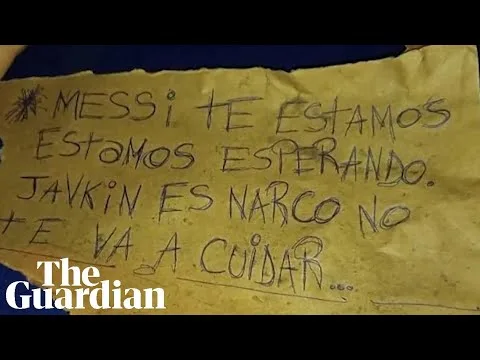 MESSI TE ESTAMOS
ESTAMOS ESPERANDO.
JAVKIN ES NARCO NO
TE VA A CUIDAR...
The
Guardian